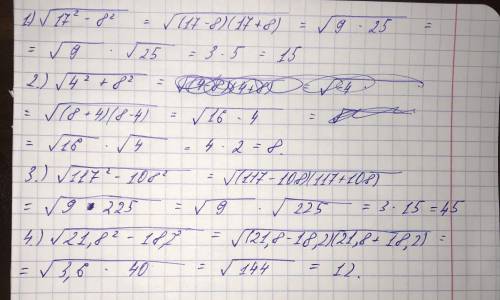 1) √17² - 8² = √(17-8)(17+8) = √9 · 25 =
= √9 · √25 = 3 · 5 = 15
2.) √4² + 8² =
= √(8+4)(8-4) = √16 · 4 =
= √16 · √4 = 4 · 2 = 8.
3.) √117² - 108² = √(117-108)(117+108)
= √9 · 225 = √9 · √225 = 3 · 15 = 45
4.) √21,8² - 18,2² = √(21,8-18,2)(21,8+18,2) =
= √3,6 · 40 = √144 = 12.